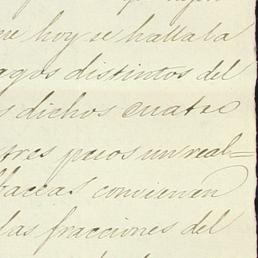 ue hoy se hallaba
agos distintos del
s dichos cuatro
tres pesos un real=
baceas convienen
las fracciones del